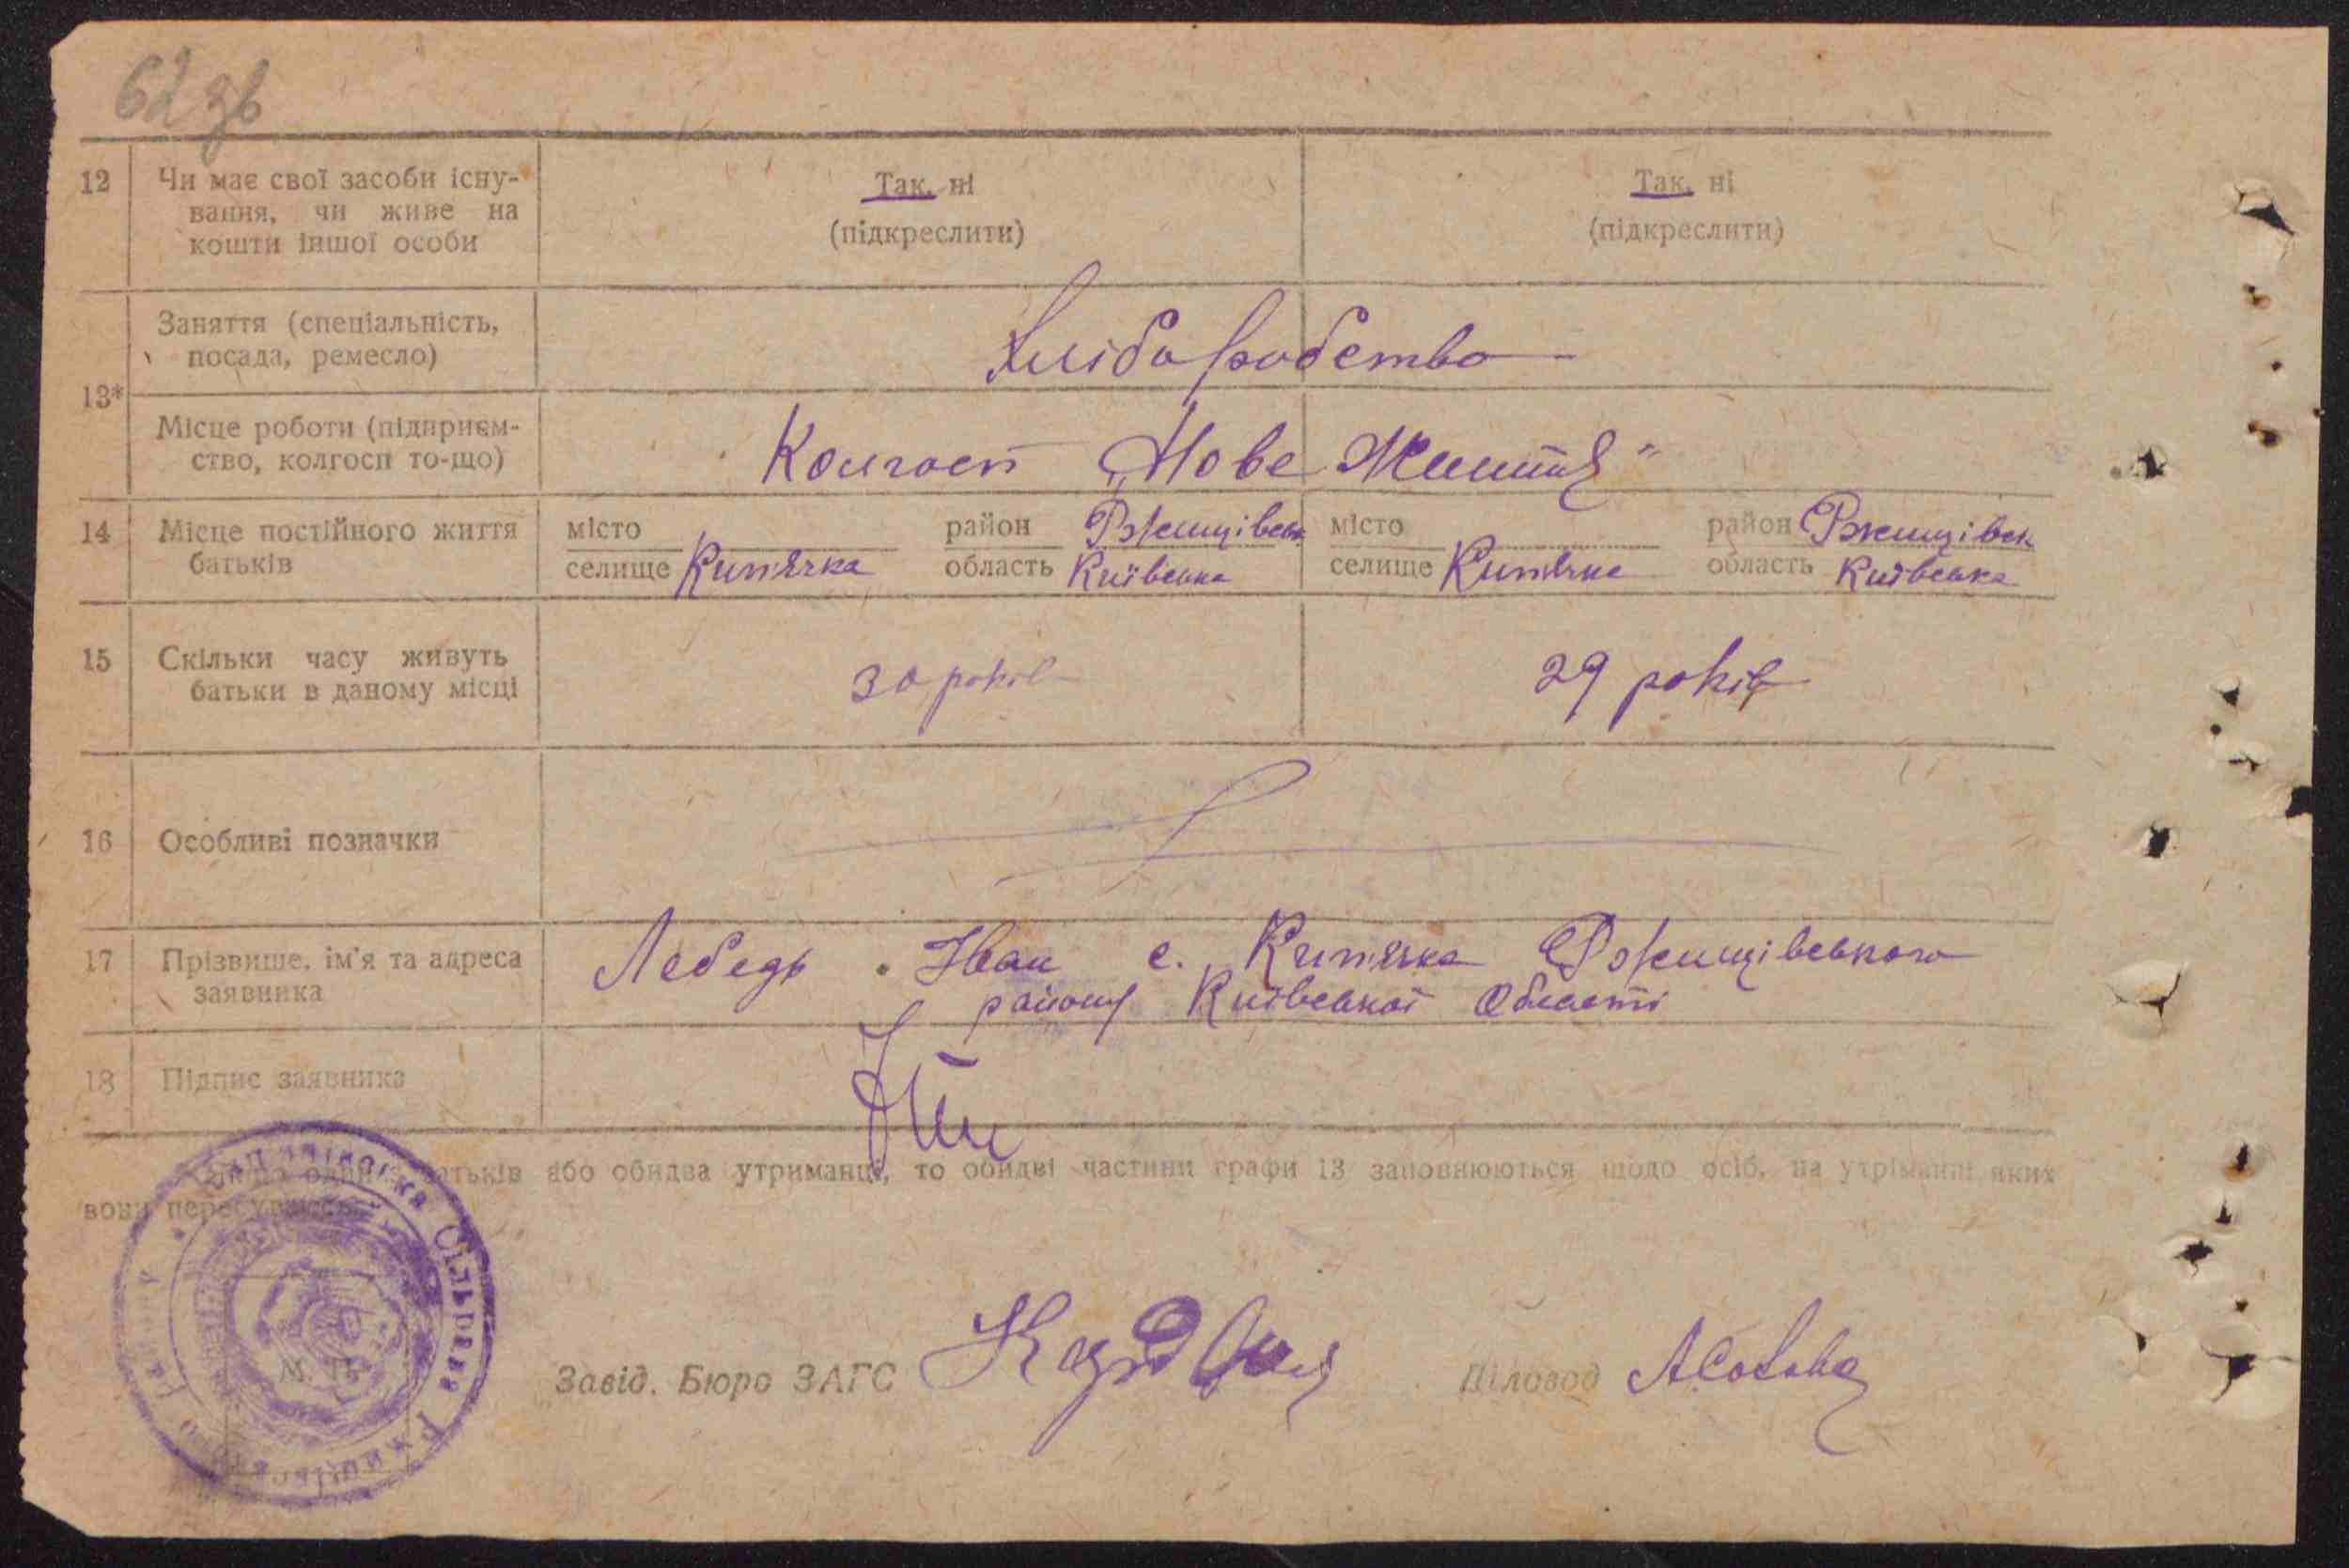 62 зв
12 Чи має свої засоби існу-
вання, чи живе на
кошти іншої особи
Так, ні
(підкреслити)
Так, ні
(підкреслити)
13*
Заняття (спеціальність,
посада, ремесло)
Хліборобство
Місце роботи (підприєм-
ство, колгосп то-що)
Колгосп „Нове Життя"
14 Місце постійного життя
батьків
місто район Ржищівськ
селище Кип'ячка область Київська
місто район Ржищівськ
селище Кип'ячка область Київська
15 Скільки часу живуть
батьки в даному місці
30 років
29 років
16 Особливі позначки
17 Прізвище, ім'я та адреса
заявника
Лебедь Іван с. Кип'ячка Ржищівського
району Київської Області
18 Підпис заявника
батьків або обидва утриманці, то обидві частини графи 13 заповнюються щодо осіб, на утриманні яких
вони перебувають.
Сільрада
М. П.
Завід. Бюро ЗАГС
Діловод